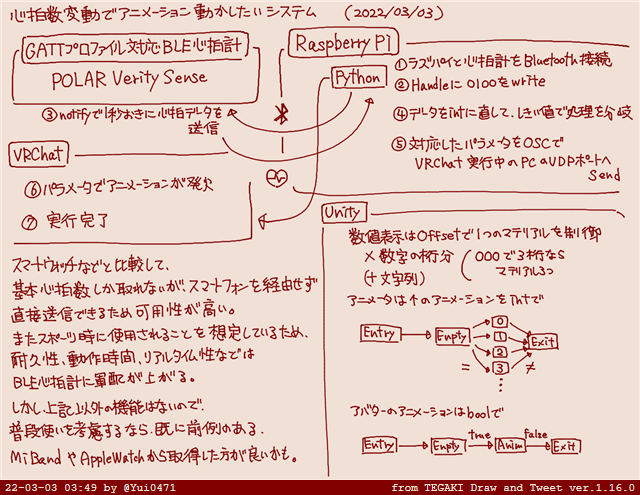 心拍数変動でアニメーション動かしたいシステム (2022/03/03)
GATTプロファイル対応BLE心拍計
POLAR Verity Sense
Raspberry Pi
Python
①ラズパイと心拍計をBluetooth接続
②Handleに0100をwrite
③notifyで1秒おきに心拍データを
送信
④データをintに直して、しきい値で処理を分岐
⑤対応したパラメータをOSCで
VRChat実行中のPCのUDPポートへ
Send
VRChat
⑥パラメータでアニメーションが発火
⑦実行完了
スマートウォッチなどと比較して、
基本心拍数しか取れないが、スマートフォンを経由せず
直接送信できるため可用性が高い。
またスポーツ時に使用されることを想定しているため、
耐久性、動作時間、リアルタイム性などでは
BLE心拍計に軍配が上がる。
しかし、上記以外の機能はないので、
普段使いを考慮するなら、既に前例のある、
MiBandやAppleWatchから取得した方が良いかも。
Unity
数値表示はOffsetで1つのマテリアルを制御
×数字の桁分
(+文字列)
(000で3桁なら
マテリアル3つ
アニメータは個々のアニメーションをIntで
Entry
Empty
0
1
2
3
Exit
=
≠
アバターのアニメーションはboolで
Entry
Empty
true
Anim
false
Exit
22-03-03 03:49 by @Yui0471
from TEGAKI Draw and Tweet ver.1.16.0